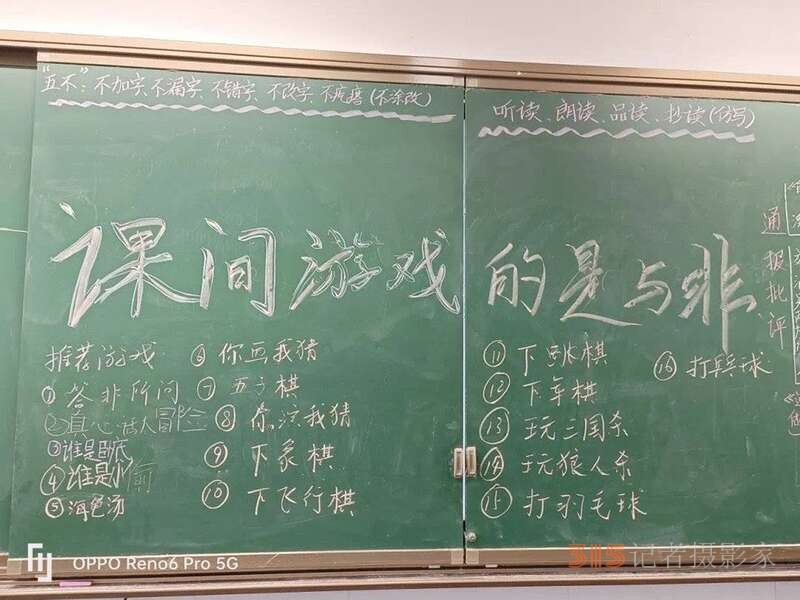 "五不":不加字、不漏字、不错字、不改字、不疙瘩(不涂改)
听读、朗读、品读、抄读(仿写)
课间游戏的是与非
推荐游戏
①答非所问
②真心话大冒险
③谁是卧底
④谁是小偷
⑤海龟汤
⑥你画我猜
⑦五子棋
⑧你演我猜
⑨下象棋
⑩下飞行棋
⑪下跳棋
⑫下军棋
⑬玩三国杀
⑭玩狼人杀
⑮打羽毛球
⑯打乒乓球
通报批评
OPPO Reno6 Pro 5G
315记者摄影家